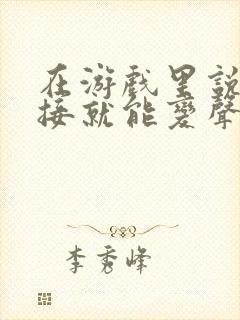 在游戏里说
接就能变声
李秀峰